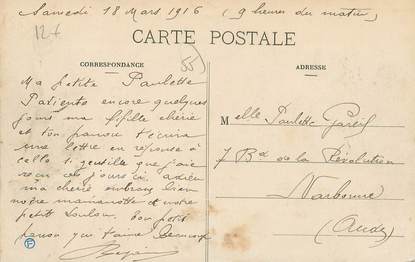 Samedi 18 Mars 1916 (9 heures du matin)
CARTE POSTALE
CORRESPONDANCE
ADRESSE
Ma petite Paulette
Patiente encore quelques
jours ma fifille chérie
et ton papa t'écrira
une lettre en réponse à
celle si gentille que j'ai
reçu ces jours ci. adieu
ma chérie embrasse bien
notre mamanotte et notre
petit Loulou. Ton petit
papa qui t'aime beaucoup
Melle Paulette
7 Bd de la Révolution
Narbonne
(Aude)